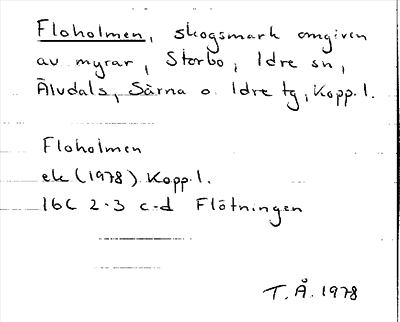 Floholmen, skogsmark omgiven
av myrar, Storbo, Idre sn,
Älvdals, Särna o. Idre tg, Kopp. l.
Floholmen
ek (1978) Kopp. l.
16C 2-3 c-d Flötningen
T. Å. 1978